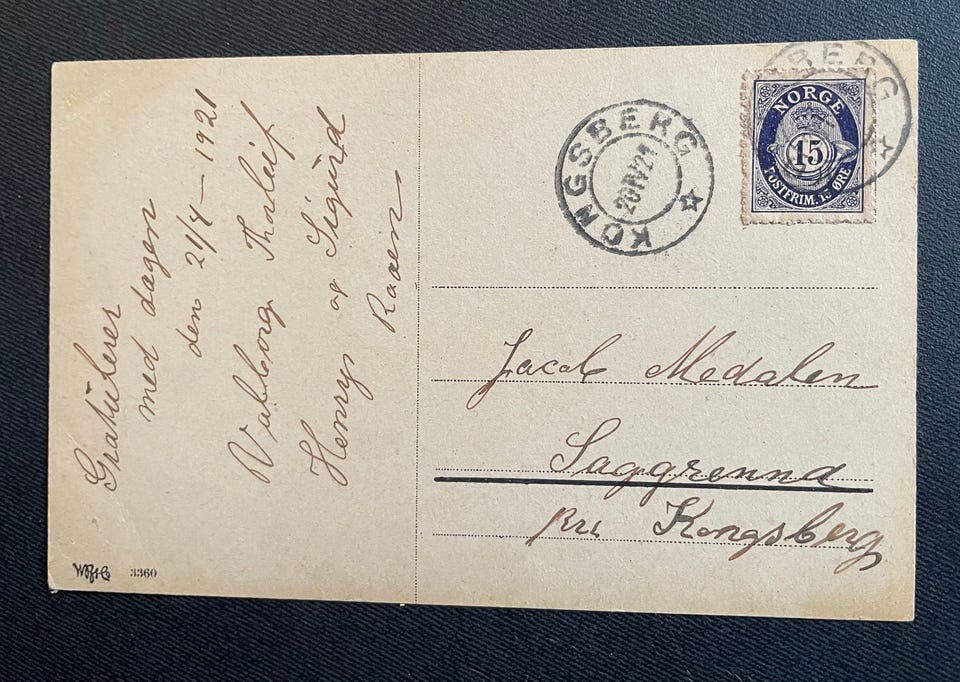 Gratulerer
med dagen
den 21/4 – 1921
Valborg Thorleif
Henry og Sigurd
Raaen
KONGSBERG
20 IV 21
BERG
NORGE
15
POSTFRIM. 15 ØRE
Jacob Medalen
Saggrennd
pr. Kongsberg
3360